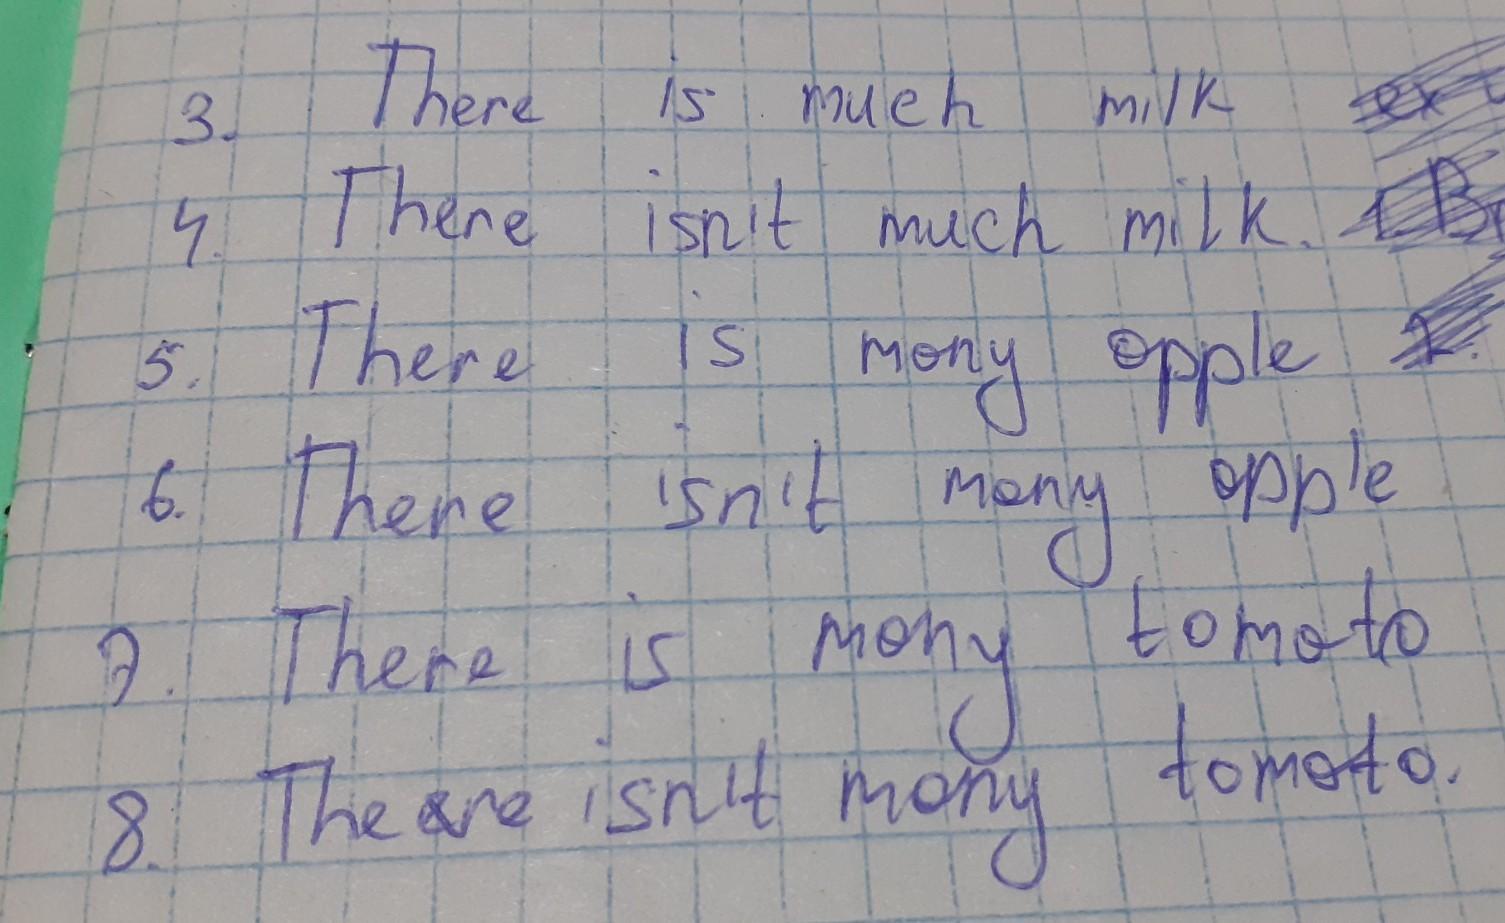 3. There is much milk
4. There isn't much milk.
5. There is mony opple
6. There isn't mony opple
7. There is mony tomato
8. There isn't mony tomoto.